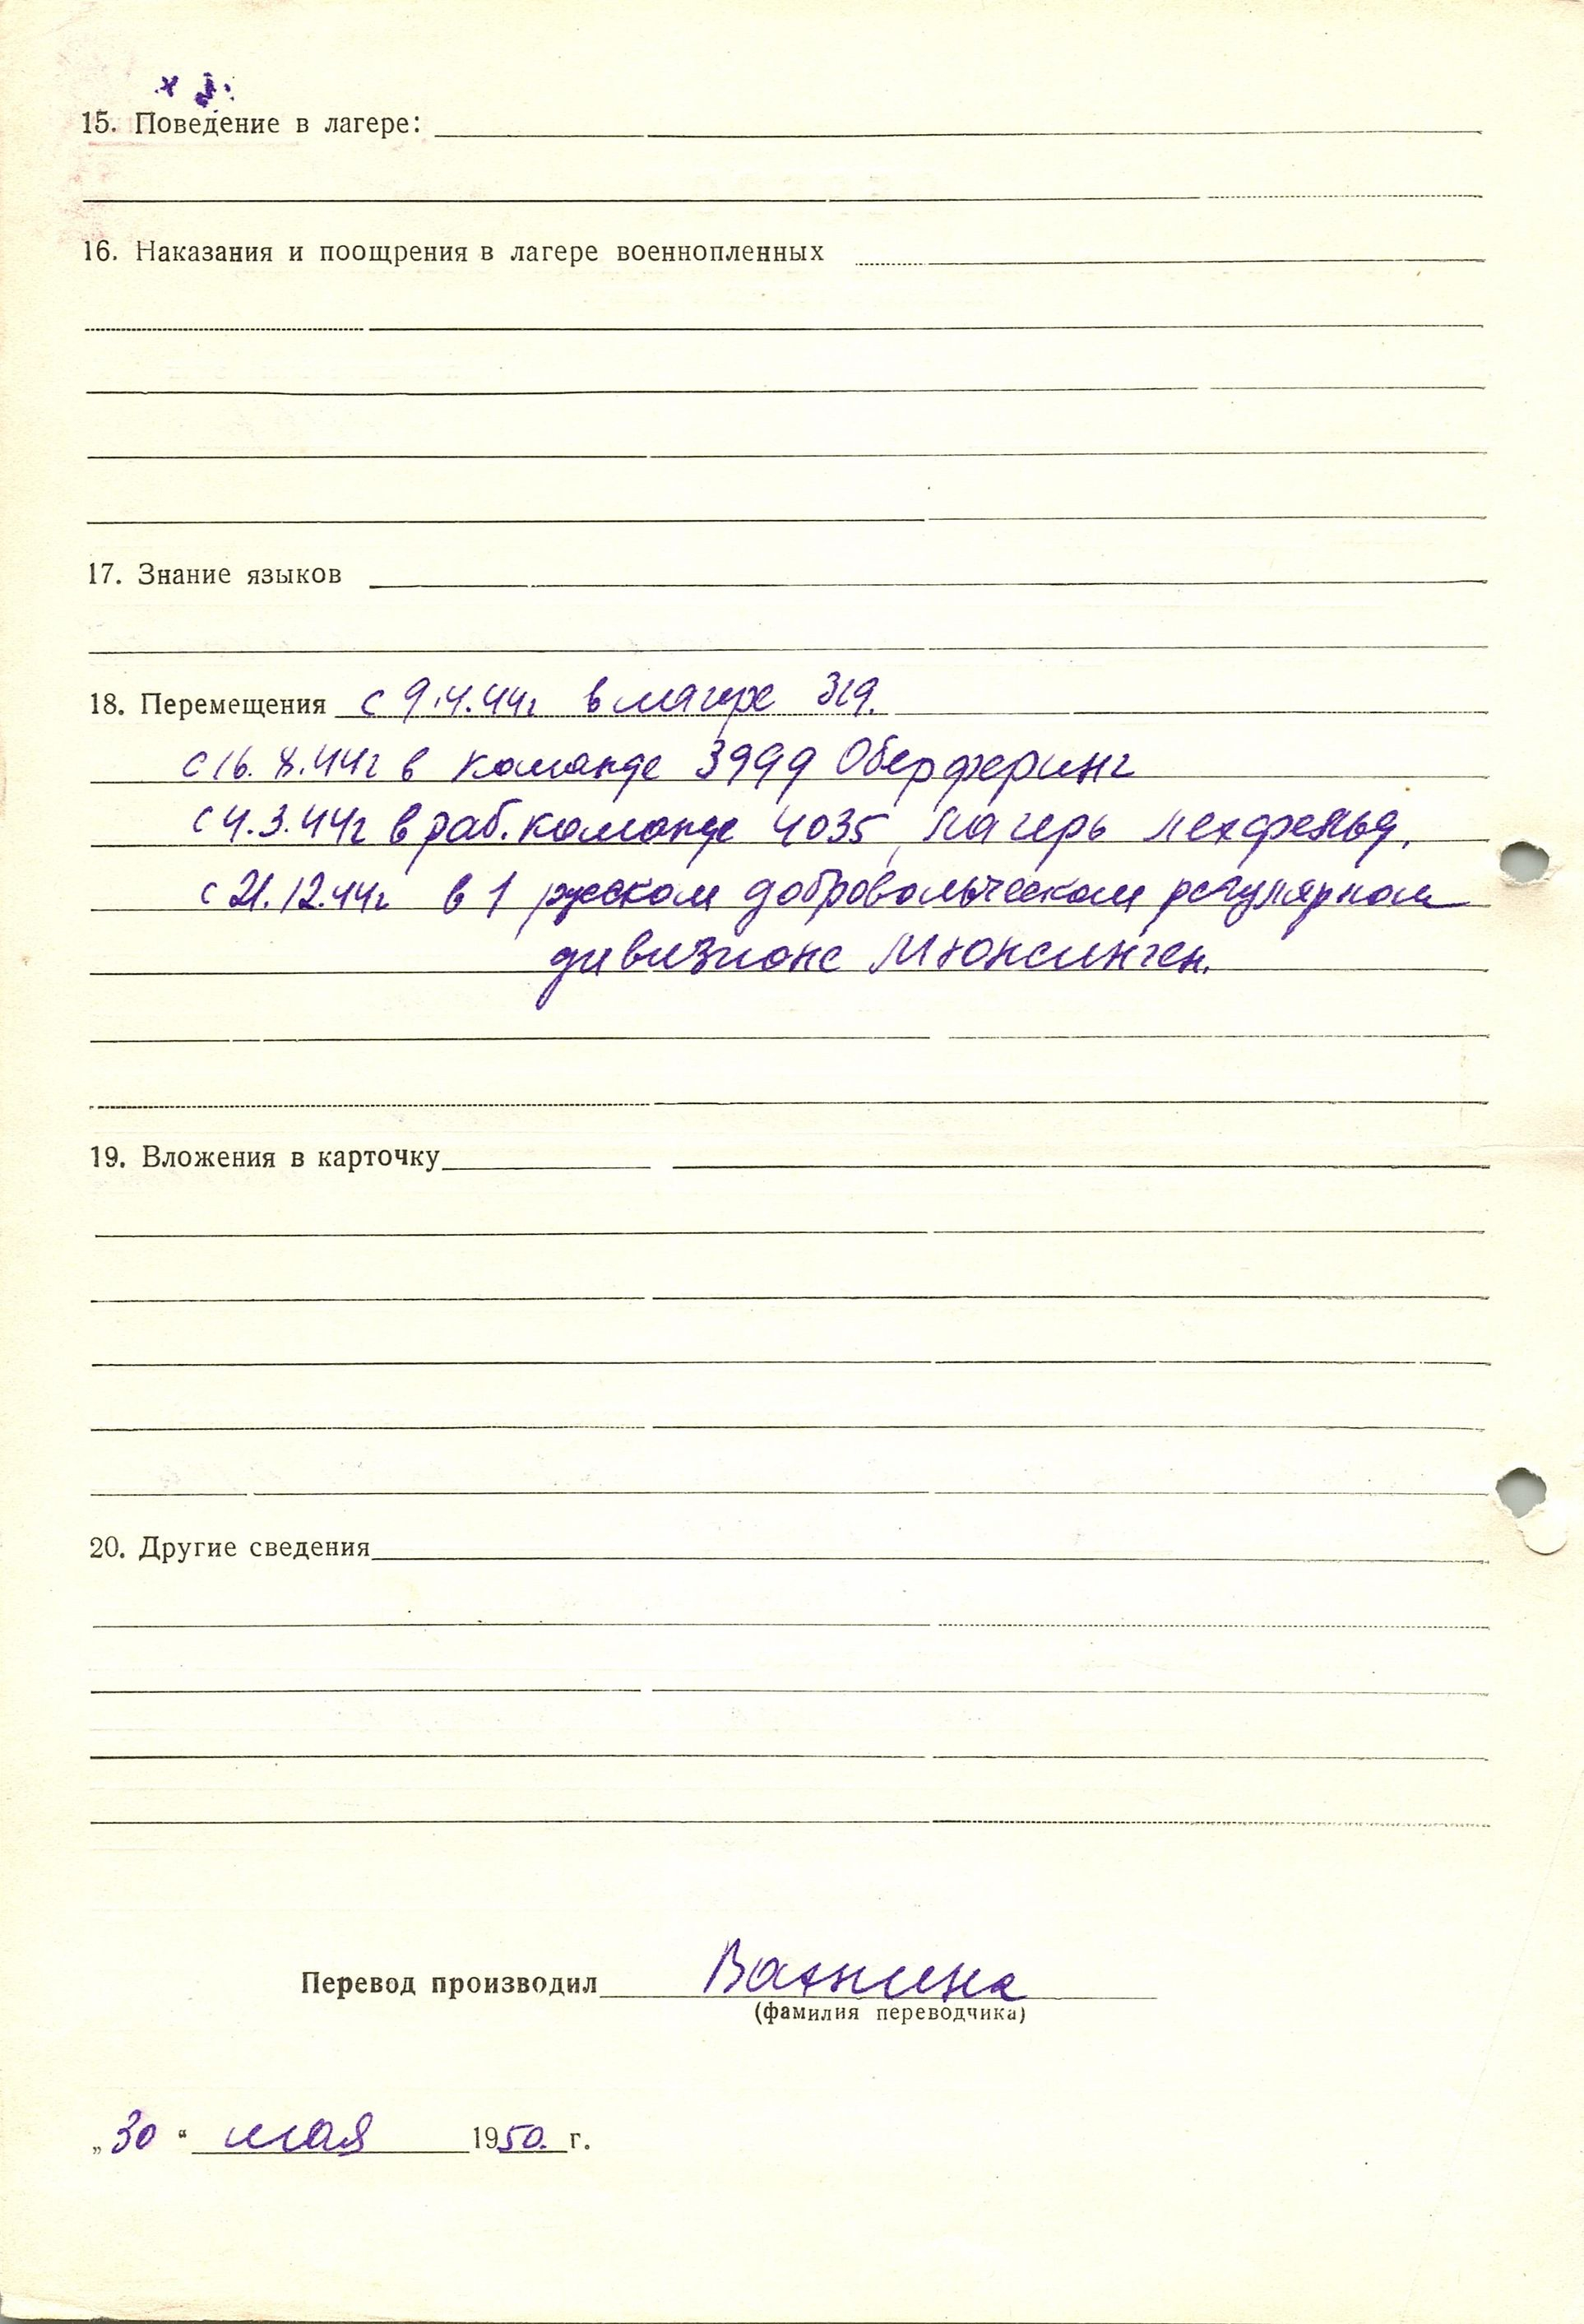 15. Поведение в лагере:
16. Наказания и поощрения в лагере военнопленных
17. Знание языков
18. Перемещения с 9.4.44г в лагере 319.
с 16.8.44г в команде 3999 Оберферинг
с 4.3.44г в раб. команде 4035, лагерь Лехфельд,
с 21.12.44г в 1 русском добровольческом регулярном
дивизионе Мюнсинген.
19. Вложения в карточку
20. Другие сведения
Перевод производил
(фамилия переводчика)
„30“ мая 1950. г.